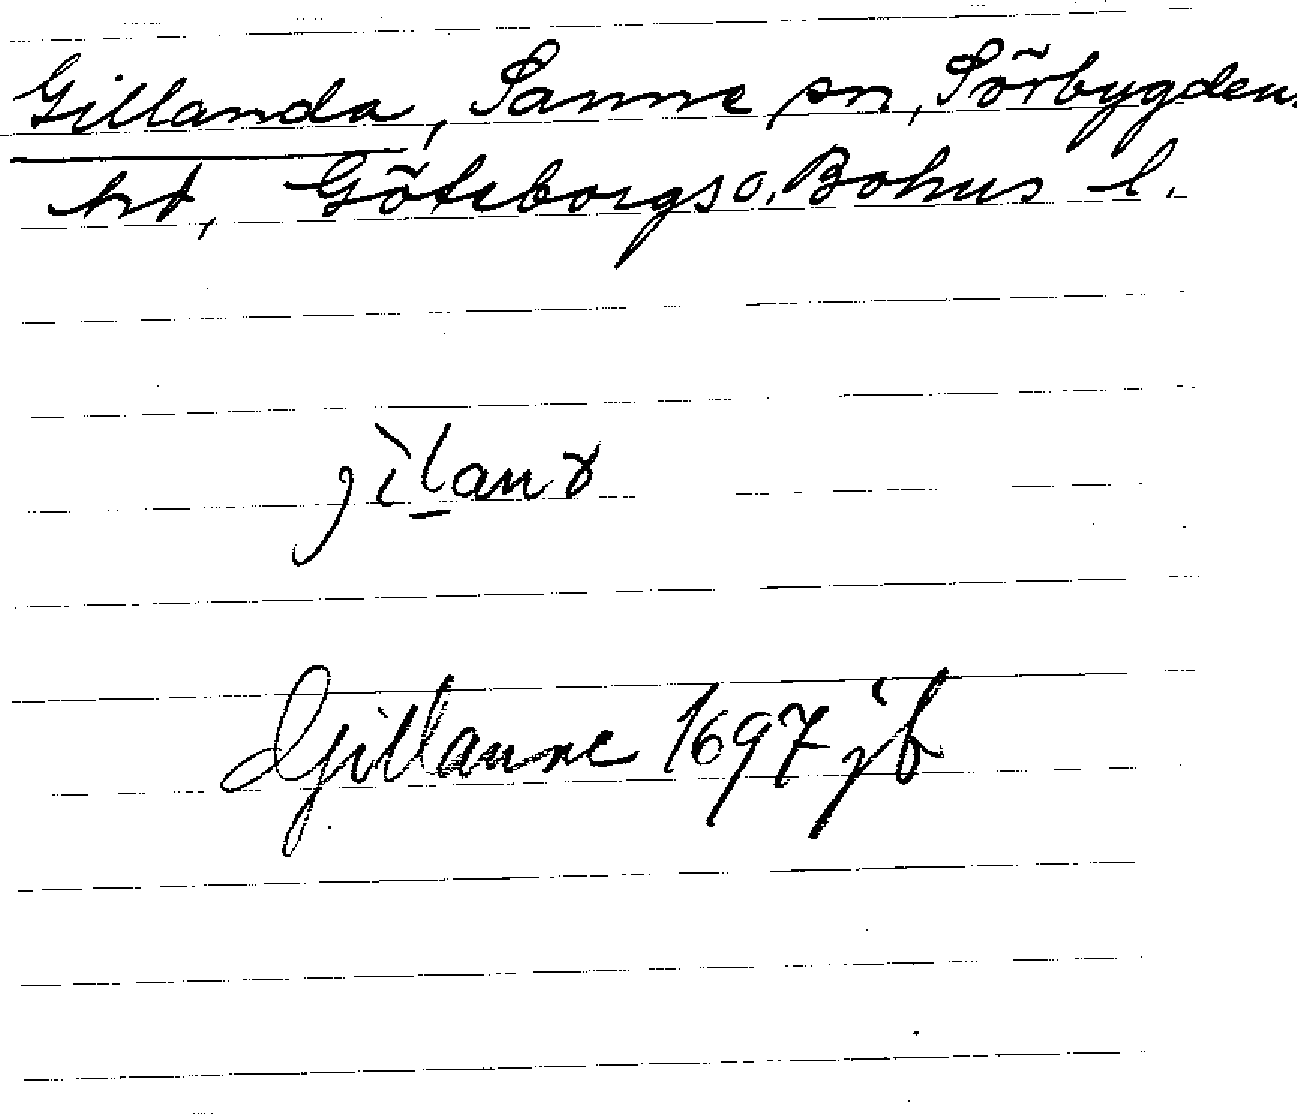 Gillanda, Sanne sn, Sörbygdens
hd, Göteborgs o. Bohus l.
Gjillanne 1697 jb